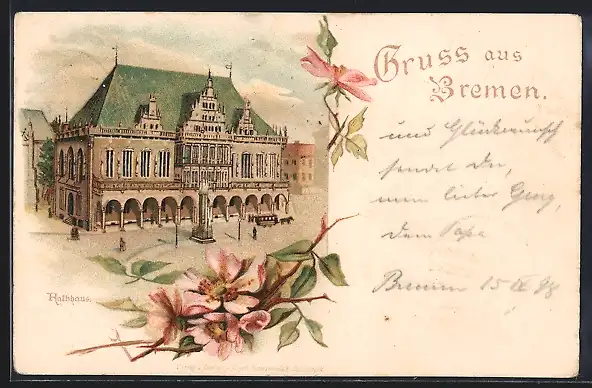 Gruss aus
Bremen.
und Glückwunsch
sendet Dir,
mein lieber Georg,
Dein Papa
Bremen 15 IX 98
Rathhaus.